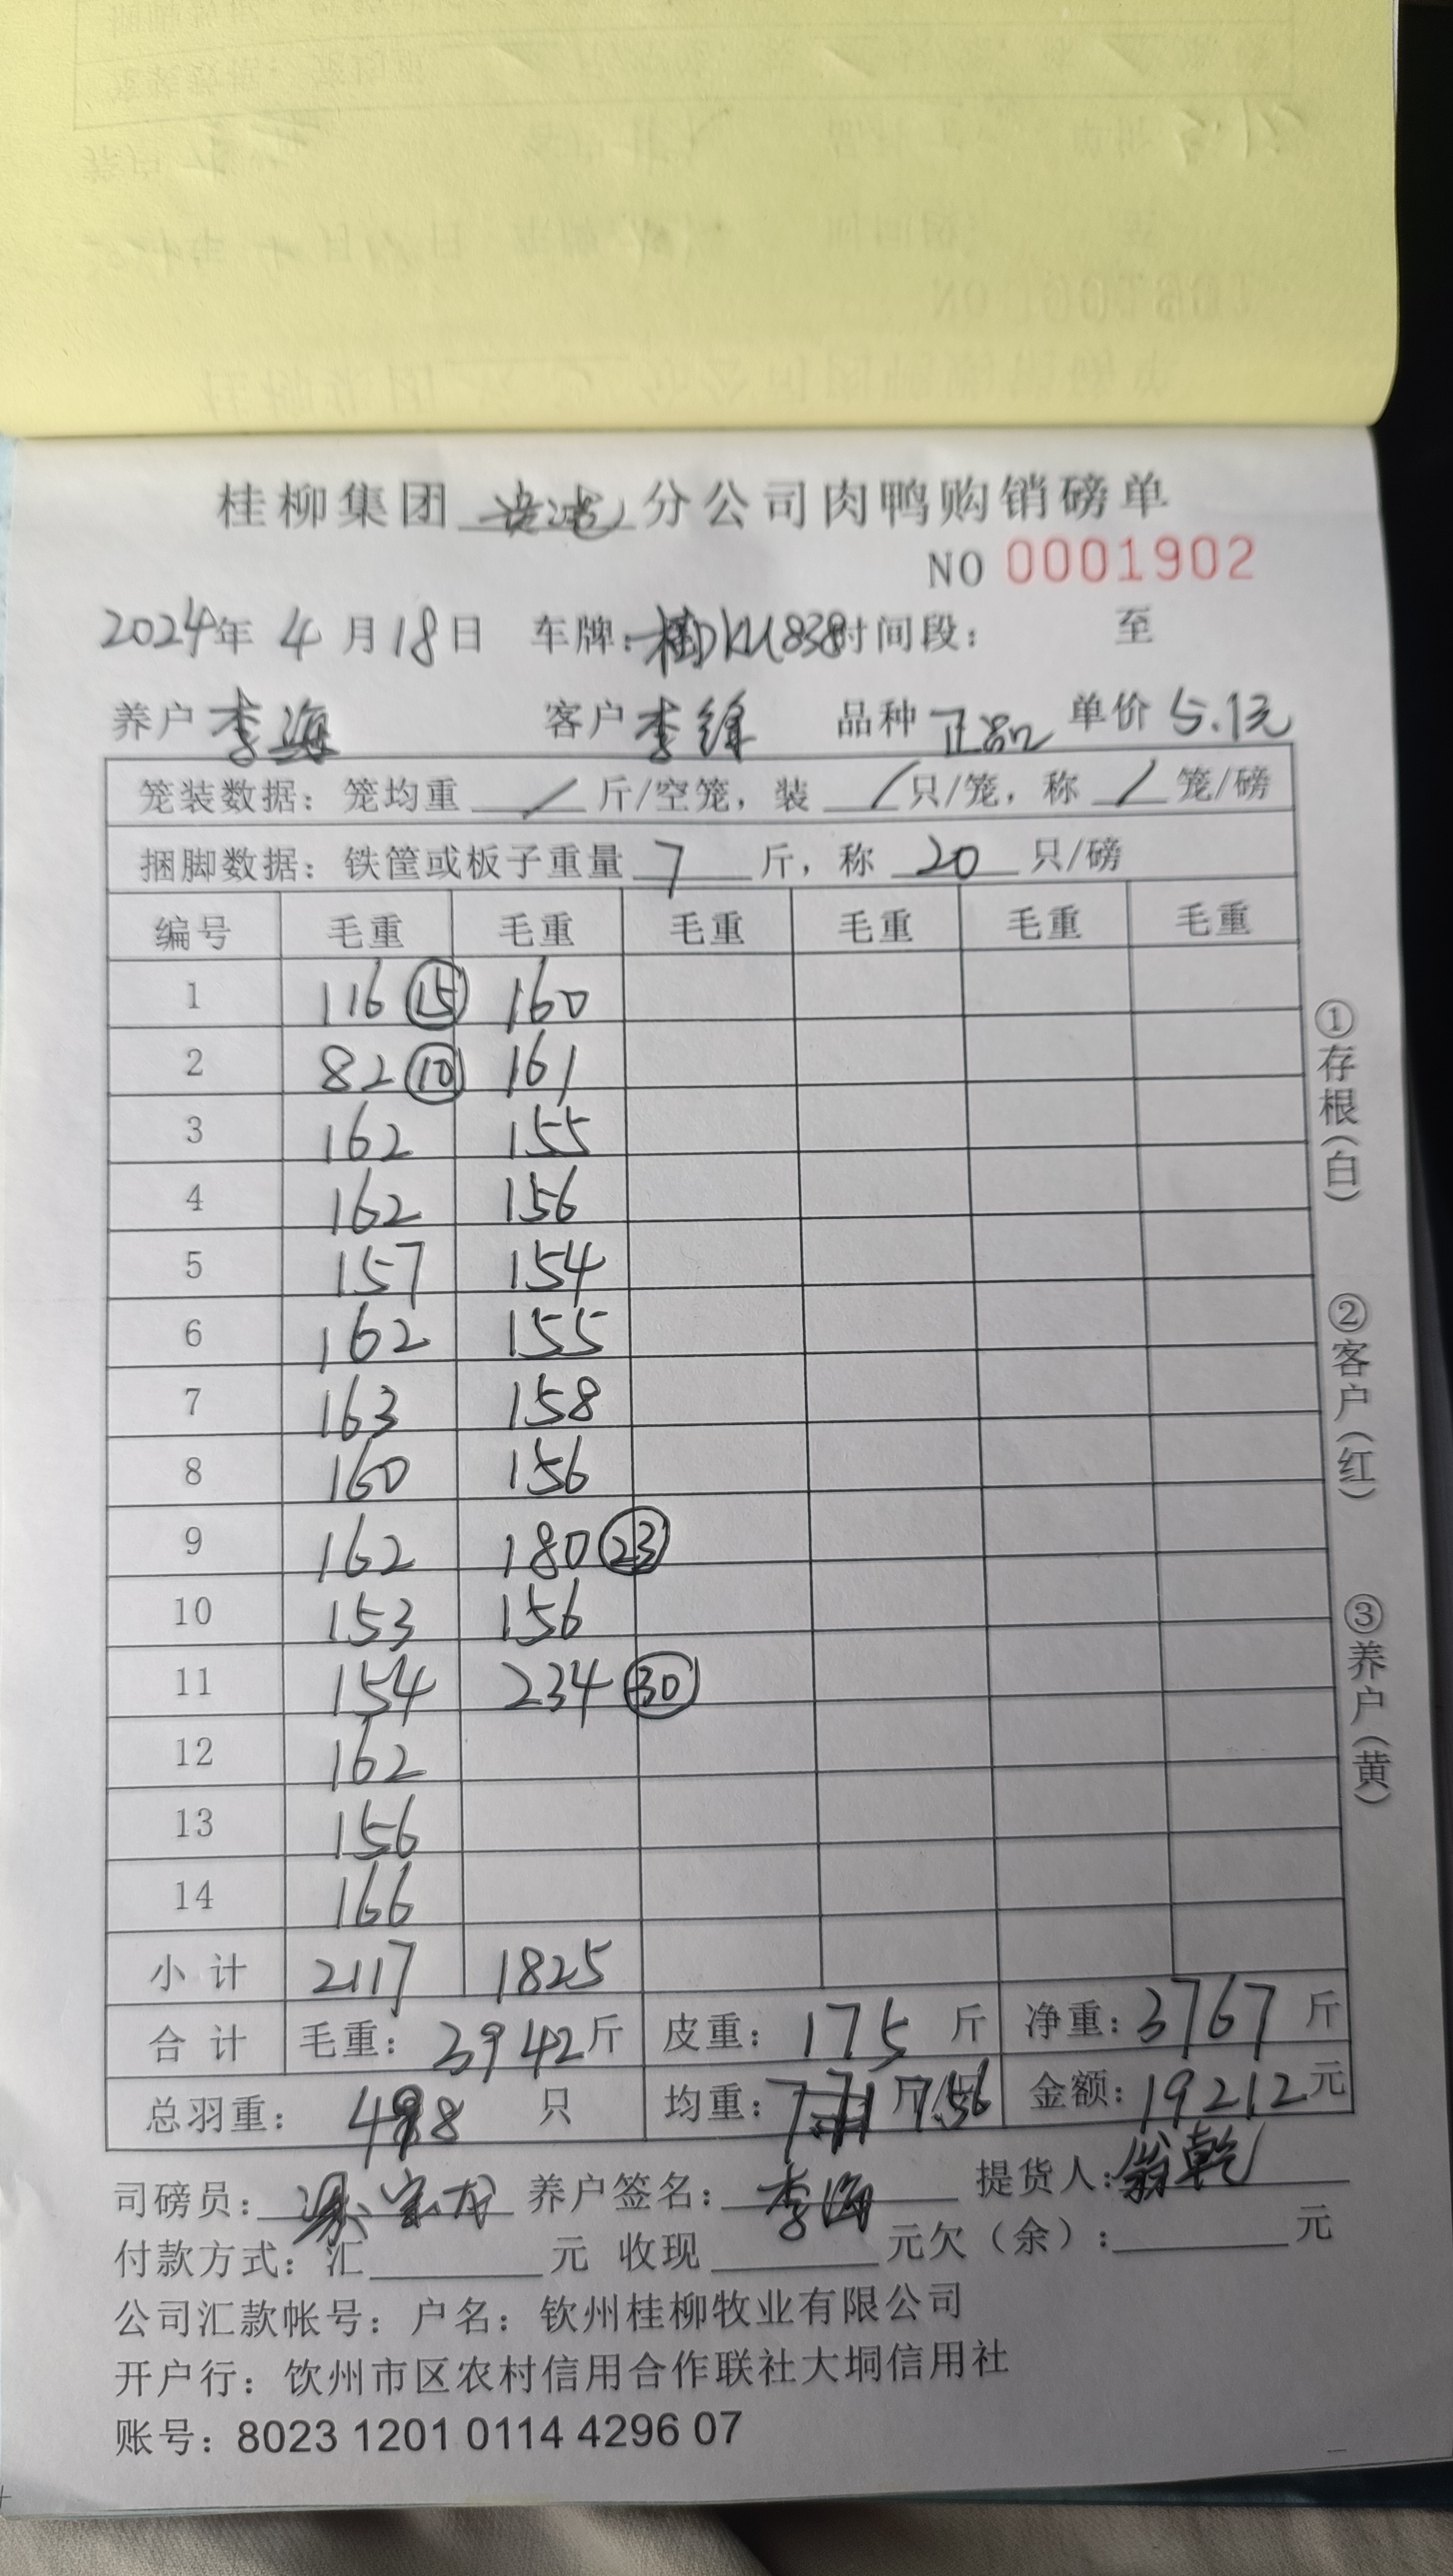 桂柳集团 分公司肉鸭购销磅单
NO 0001902
2024年 4 月 18日 车牌：桂DKU838 时间段： 至
养户 李海 客户 李锋 品种 正品 单价 5.1元
笼装数据：笼均重 / 斤/空笼，装 / 只/笼，称 / 笼/磅
捆脚数据：铁筐或板子重量 7 斤，称 20 只/磅
编号 毛重 毛重 毛重 毛重 毛重 毛重
1 116 ⑮ 160
2 82 ⑩ 161
3 162 155
4 162 156
5 157 154
6 162 155
7 163 158
8 160 156
9 162 180 ㉓
10 153 156
11 154 234 ㉚
12 162
13 156
14 166
小计 2117 1825
合计 毛重：3942斤 皮重：175 斤 净重：3767 斤
总羽重：498 只 均重：7.56 金额：19212元
司磅员： 养户签名：李海 提货人：
付款方式：汇 元 收现 元欠（余）： 元
公司汇款帐号：户名：钦州桂柳牧业有限公司
开户行：饮州市区农村信用合作联社大垌信用社
账号：8023 1201 0114 4296 07
①存根（白）
②客户（红）
③养户（黄）